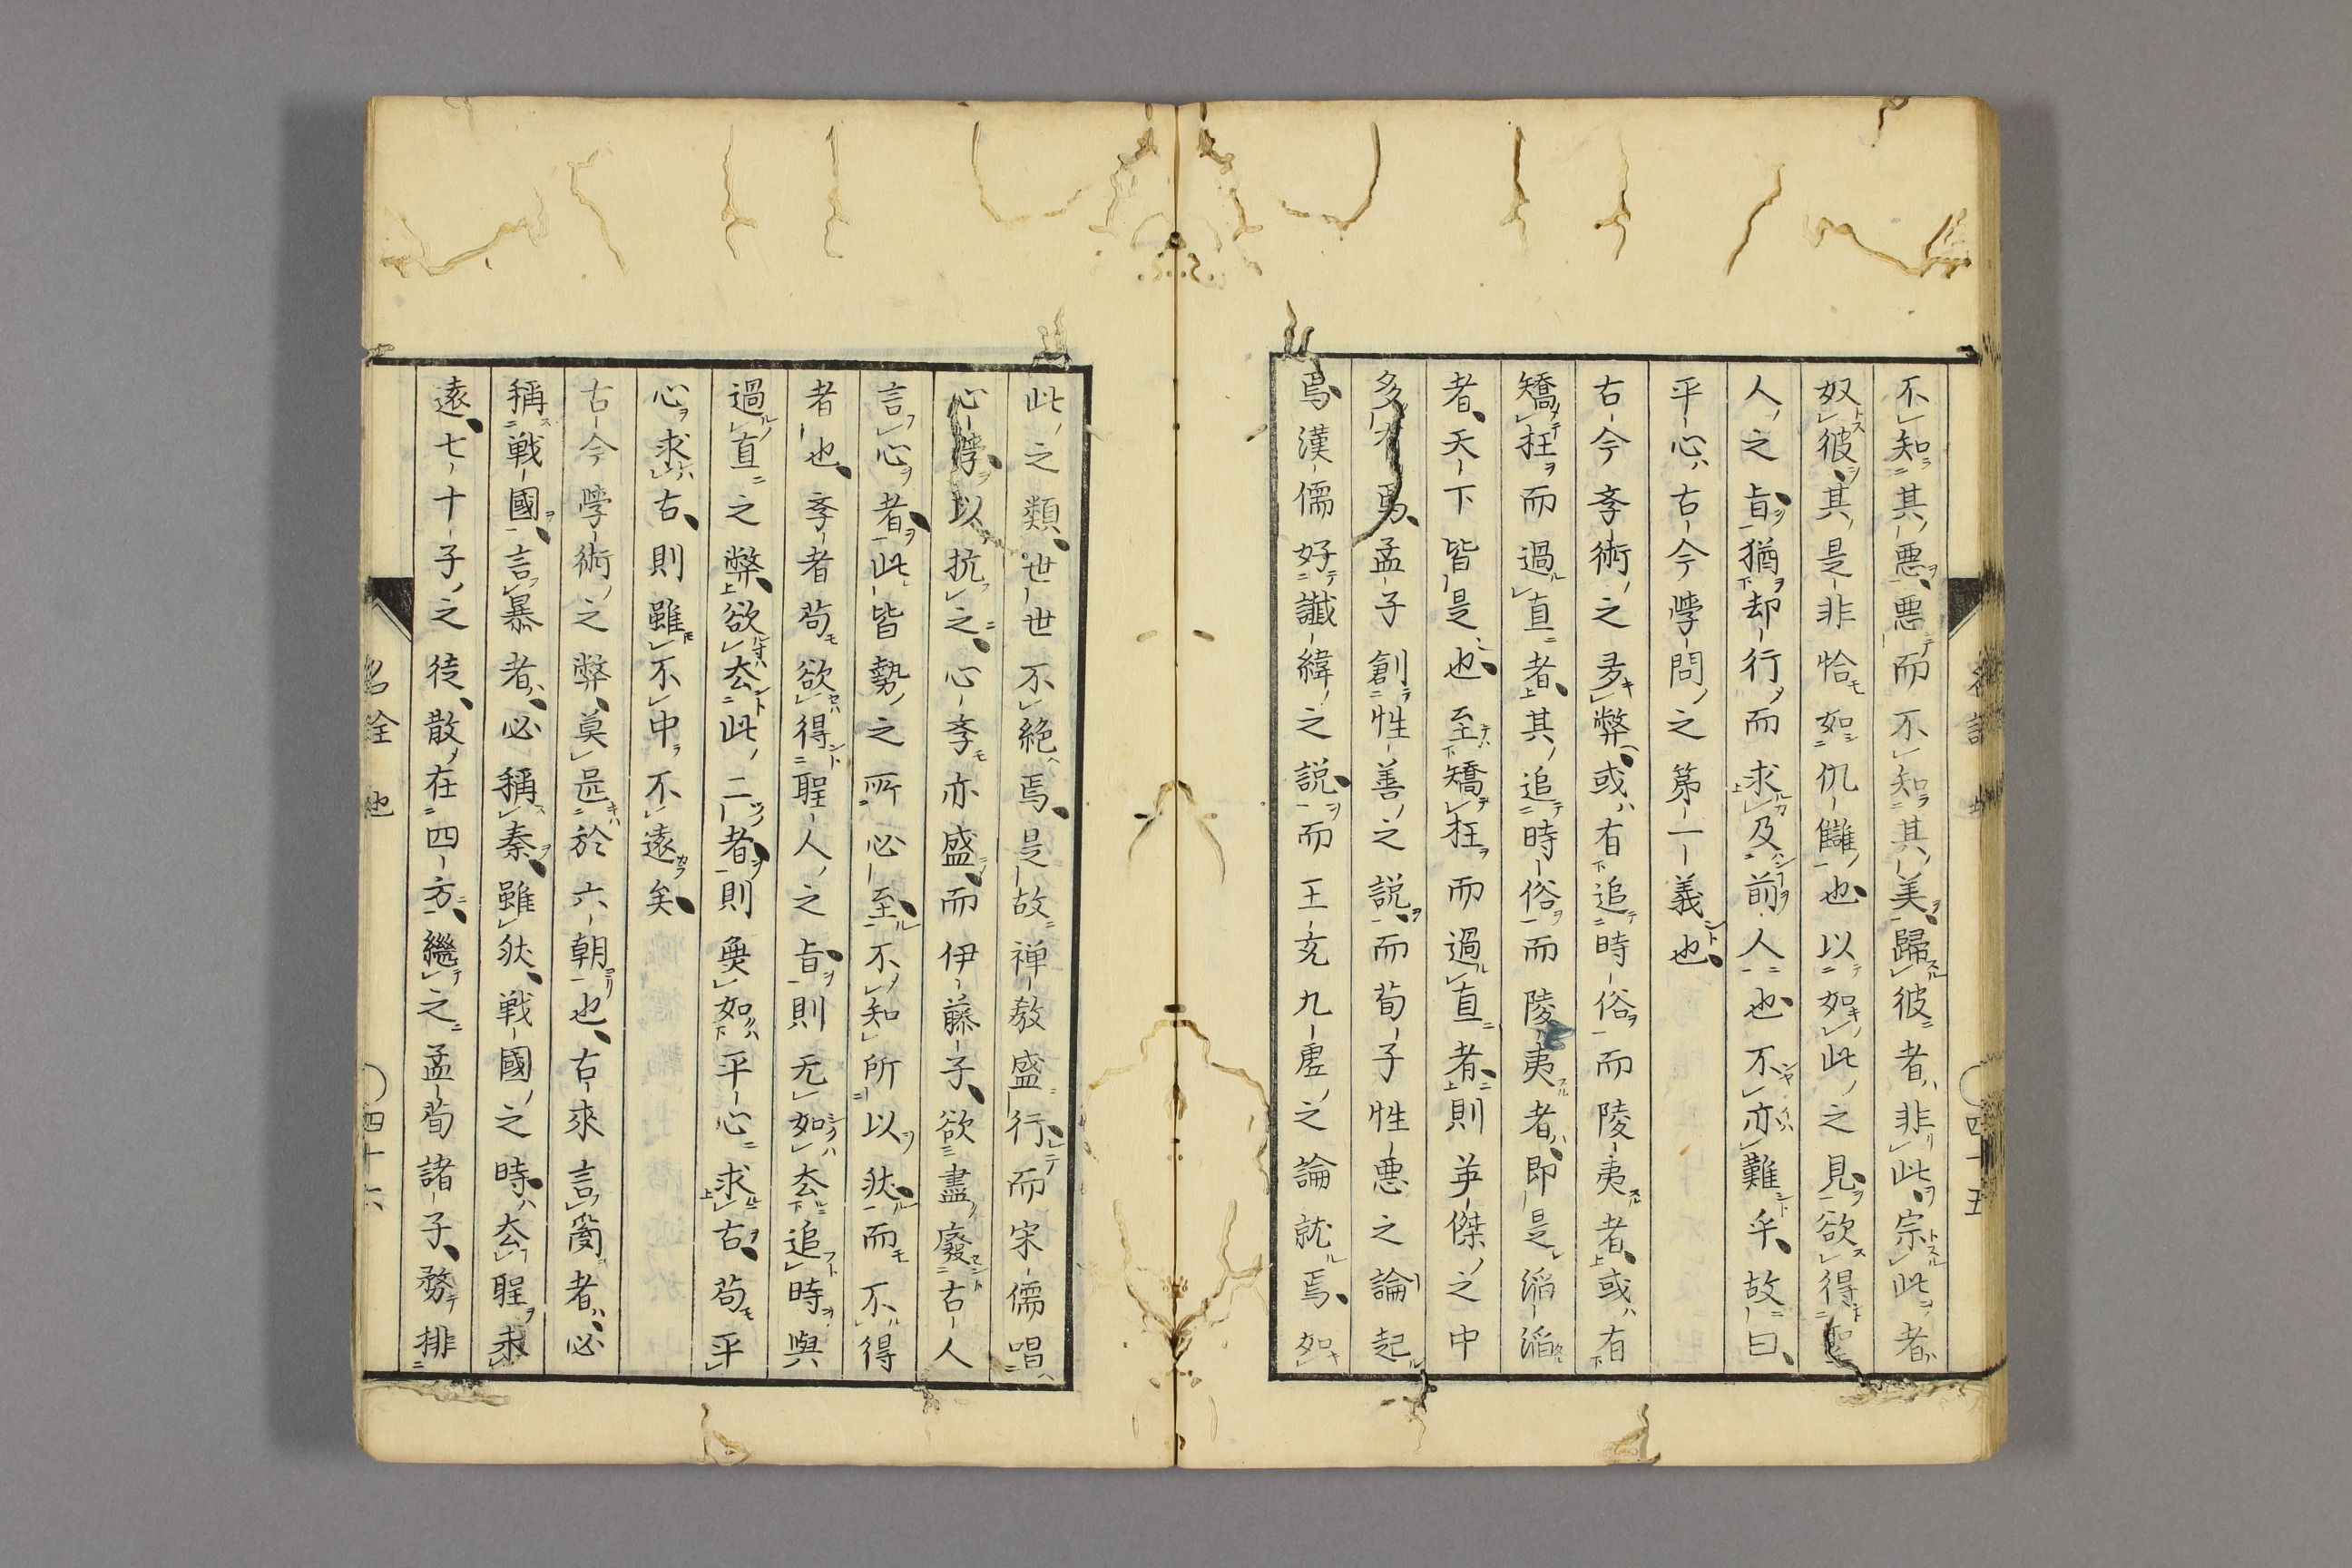 不知其惡惡而不知其美歸彼者非此宗此者
奴彼其是非恰如仇讎也以如此之見欲得聖
人之旨猶却行而求及前人也不亦難乎故曰
平心古今學問之第一義也
古今斈術之多弊或有追時俗而陵夷者或有
矯枉而過直者其追時俗而陵夷者即是滔滔
者天下皆是也至矯枉而過直者則英傑之中
多 孟子創性善之說而荀子性惡之論起
焉漢儒好讖緯之說而王充九虛之論就焉如
此之類世世不絕焉是故禅教盛行而宋儒唱
心學以抗之心斈亦盛而伊藤子欲盡廢古人
言心者此皆勢之所必至不知所以狀而不得
者也斈者苟欲得聖人之旨則无如去追時與
過直之弊欲去此二者則莫如平心求古苟平
心求古則雖不中不遠矣
古今學術之弊莫甚於六朝也古來言 者必
稱戰國言暴者必稱秦雖狀戰國之時去聖未
遠七十子之徒散在四方繼之孟荀諸子務排
四十五
名詮 也
四十六